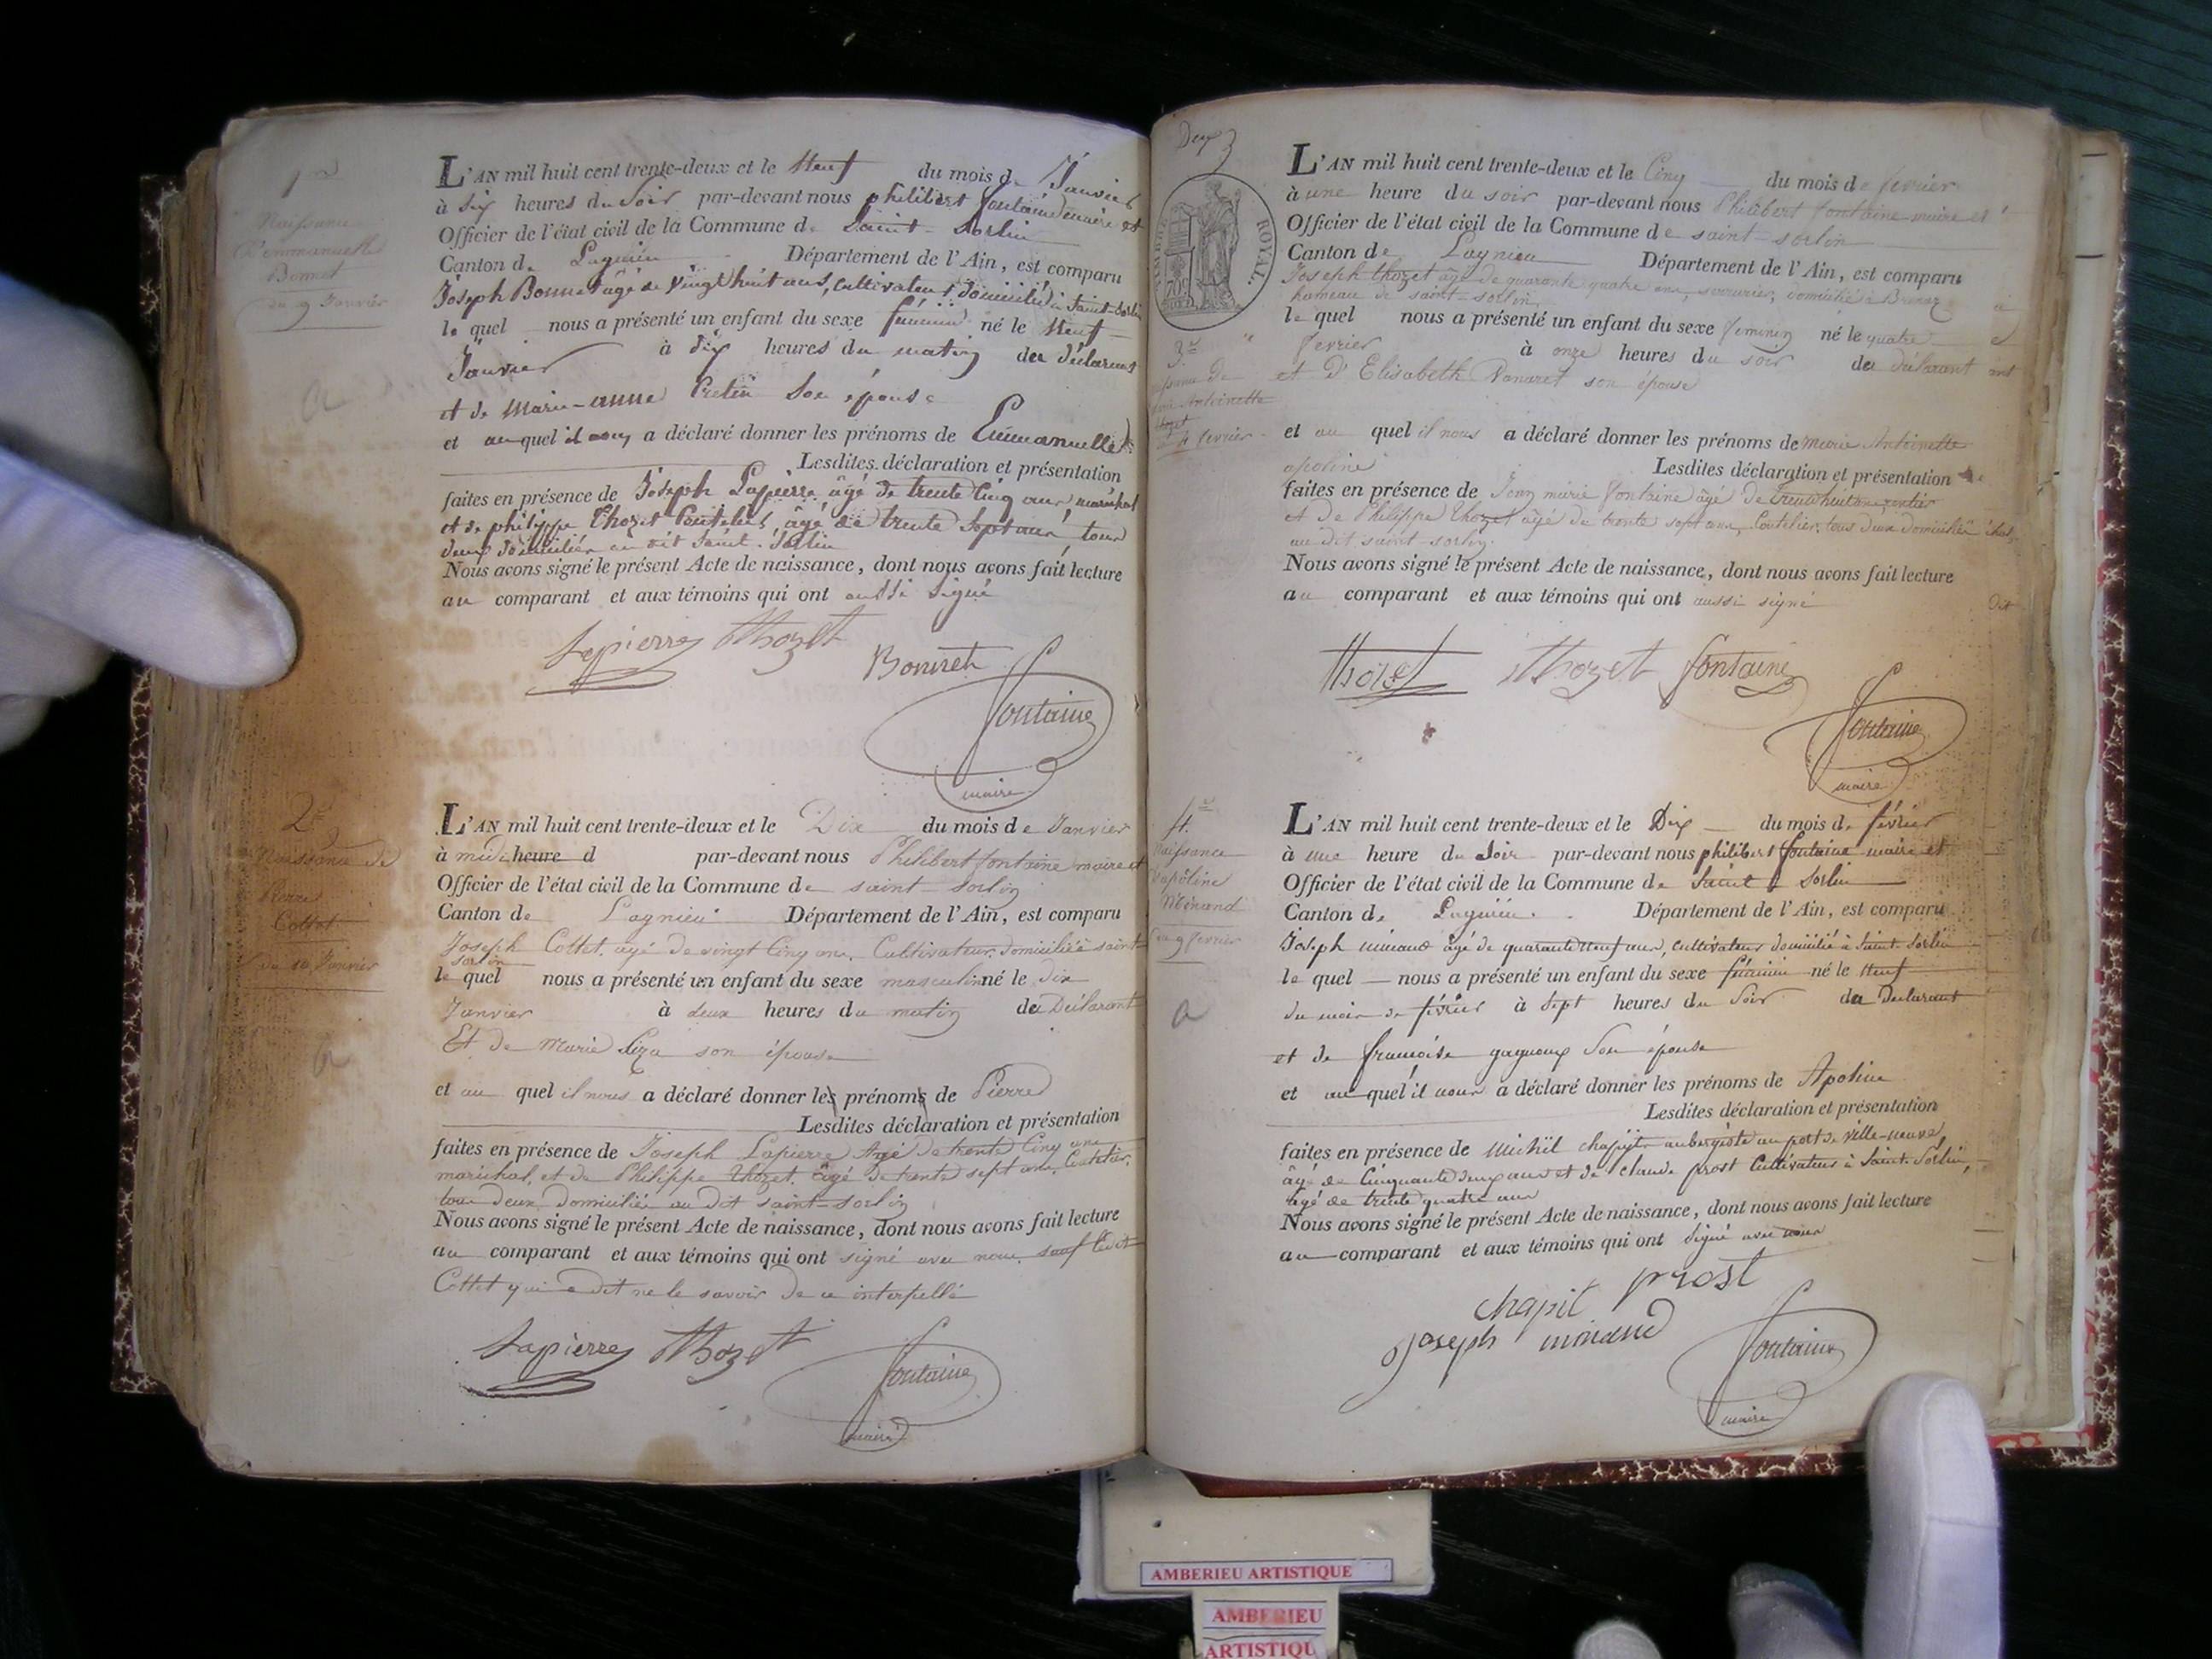 1er
Naissance
D'emmanuelle
Bonnet
du 9 Janvier
L'AN mil huit cent trente-deux et le Neuf du mois de Janvier
à Six heures du Soir par-devant nous philibert fontaine maire et
Officier de l'état civil de la Commune de Saint-Sorlin
Canton de Lagnieu Département de l'Ain, est comparu
Joseph Bonnet âgé de vingt huit ans, cultivateur, domicilié à Saint-Sorlin
le quel nous a présenté un enfant du sexe féminin né le Neuf
Janvier à dix heures du matin du déclarant
et de Marie-anne son épouse
et au quel il nous a déclaré donner les prénoms de Emmanuelle
Lesdites déclaration et présentation
faites en présence de Joseph Lapierre âgé de trente Cinq ans, maréchal
et de philippe Thozet Coutelier, âgé de trente Sept ans, tous
deux domiciliés au dit Saint-Sorlin
Nous avons signé le présent Acte de naissance, dont nous avons fait lecture
au comparant et aux témoins qui ont aussi Signé
Lapierre Thozet
Bonnet
fontaine
maire
2e
Naissance de
Pierre
Cottet
du 10 Janvier
L'AN mil huit cent trente-deux et le Dix du mois de Janvier
à midi heure d par-devant nous Philibert fontaine maire et
Officier de l'état civil de la Commune de saint-sorlin
Canton de Lagnieu Département de l'Ain, est comparu
Joseph Cottet, agé de vingt Cinq ans, Cultivateur, domicilié à saint-
sorlin
le quel nous a présenté un enfant du sexe masculin né le dix
Janvier à deux heures du matin du Déclarant
Et de Marie son épouse
et au quel il nous a déclaré donner les prénoms de Pierre
Lesdites déclaration et présentation
faites en présence de Joseph Lapierre Agé de trente Cinq ans
maréchal, et de Philippe Thozet, âgé de trente sept ans, Coutelier,
tous deux domiciliés au dit saint-sorlin
Nous avons signé le présent Acte de naissance, dont nous avons fait lecture
au comparant et aux témoins qui ont signé avec nous, sauf ledit
Cottet qui a dit ne le savoir de ce interpellé
Lapierre Thozet
fontaine
maire
Deux
ROYAL
3e
Antoinette
4 fevrier
L'AN mil huit cent trente-deux et le Cinq du mois de fevrier
à une heure du soir par-devant nous Philibert fontaine maire et
Officier de l'état civil de la Commune de saint-sorlin
Canton de Lagnieu Département de l'Ain, est comparu
Joseph thozet âgé de quarante quatre ans, serrurier, domicilié à
hameau de saint-sorlin
le quel nous a présenté un enfant du sexe feminin né le quatre
fevrier à onze heures du soir du déclarant
et D'Elisabeth son épouse
et au quel il nous a déclaré donner les prénoms de marie Antoinette
apoline Lesdites déclaration et présentation
faites en présence de marie fontaine âgé de trente huit ans rentier
et de Philippe Thozet âgé de trente sept ans, Coutelier, tous deux domiciliés
au dit saint-sorlin.
Nous avons signé le présent Acte de naissance, dont nous avons fait lecture
au comparant et aux témoins qui ont aussi signé
thozet Thozet fontaine
fontaine
maire
4e
Naissance
D'apoline
Minand
Du 9 fevrier
L'AN mil huit cent trente-deux et le Dix du mois de février
à une heure du Soir par-devant nous philibert fontaine maire et
Officier de l'état civil de la Commune de Saint Sorlin
Canton de Lagnieu. Département de l'Ain, est comparu
Joseph minand âgé de quarante neuf ans, cultivateur domicilié à Saint-Sorlin
le quel nous a présenté un enfant du sexe féminin né le Neuf
du mois de février à Sept heures du Soir du Déclarant
et de françoise Son épouse
et au quel il nous a déclaré donner les prénoms de Apoline
Lesdites déclaration et présentation
faites en présence de Michel chapit aubergiste au port de ville-neuve
âgé de Cinquante deux ans et de claude prost Cultivateur à Saint-Sorlin,
âgé de trente quatre ans
Nous avons signé le présent Acte de naissance, dont nous avons fait lecture
au comparant et aux témoins qui ont Signé avec nous
chapit prost
joseph minand
fontaine
maire
AMBERIEU ARTISTIQUE
AMBERIEU
ARTISTIQU